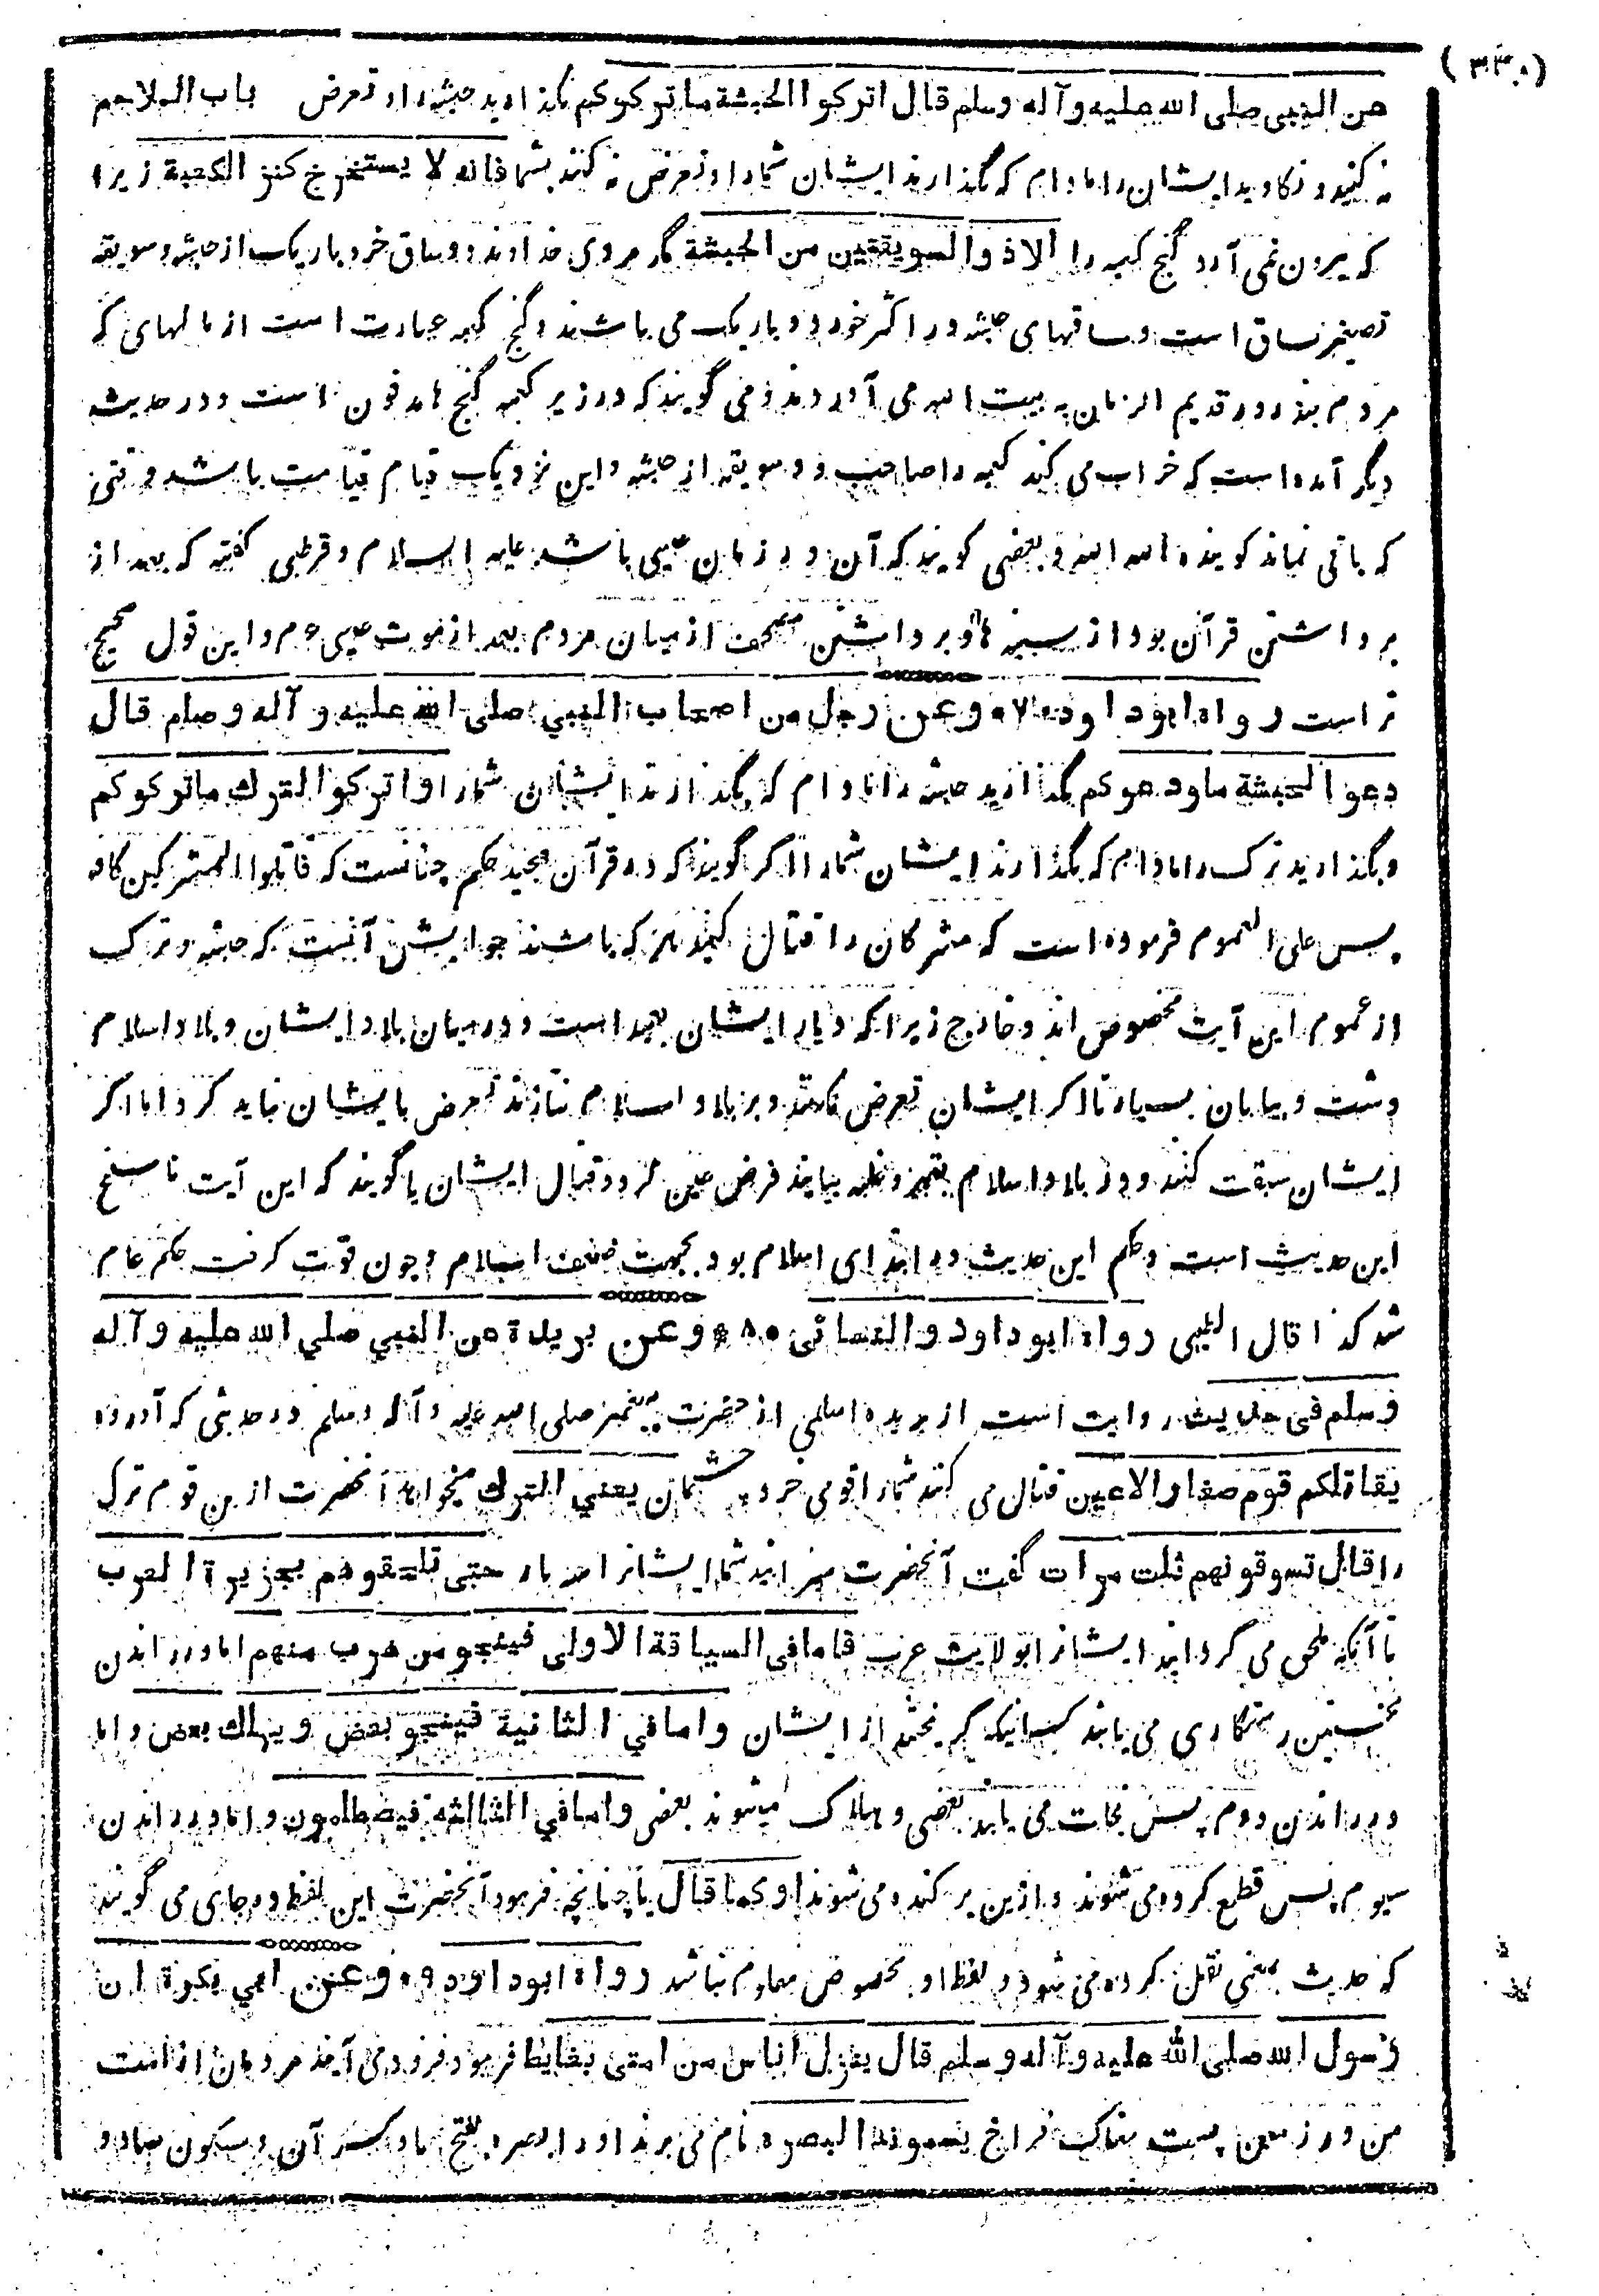 (٣٣٠)
عن النبي صلى الله عليه وآله وسلم قال اتركوا الحبشة ما تركوكم بگذارید حبشه را و تعرض باب الملاحم
نه کنید و نکاوید ایشان را مادام که بگذارند ایشان شمارا و تعرض نه کنند بشما فانه لا يستخرج كنز الكعبة زیرا
که بیرون نمی آرد گنج کعبه را الا ذو السويقتين من الحبشة مگر مردی خداوند دو ساق خرد باریک از حبشه و سویقه
تصغیر ساق است و ساقهای حبشه در اکثر خورد و باریک می باشند و گنج کعبه عبارت است از مالهای که
مردم بنذر در قدیم الزمان به بیت الله می آوردند و می گویند که در زیر کعبه گنج ها مدفون است و در حدیث
دیگر آمده است که خراب می کند کعبه را صاحب دو سویقه از حبشه و این نزدیک قیام قیامت باشد وقتی
که باقی نماند گوینده الله الله و بعضی گویند که آن در زمان عیسی باشد علیه السلام و قرطبی گفته که بعد از
برداشتن قرآن بود از سینه ها و برداشتن مصحف از میان مردم بعد از موت عیسی ءم و این قول صحیح
تر است رواه ابو داود وعن رجل من اصحاب النبي صلى الله عليه و آله و سلم قال
دعوا الحبشة ما ودعوكم بگذارید حبشه را مادام که بگذارند ایشان شمارا و اتركوا الترك ما تركوكم
و بگذارید ترک را مادام که بگذارند ایشان شمارا اگر گویند که در قرآن مجید حکم چنانست که قاتلوا المشركين كافة
پس علی العموم فرموده است که مشرکان را قتال کنید هر که باشند جوابش آنست که حبشه و ترک
از عموم این آیت مخصوص اند و خارج زیرا که دیار ایشان بعید است و درمیان بلاد ایشان و بلاد اسلام
دشت و بیابان بسیار تا اگر ایشان تعرض نکنند و بر بلاد اسلام نتازند تعرض بایشان نباید کرد اما اگر
ایشان سبقت کنند و در بلاد اسلام بقهر و غلبه بیایند فرض عین گردد قتال ایشان یا گویند که این آیت ناسخ
این حدیث است و حکم این حدیث در ابتدای اسلام بود بجهت ضعف اسلام و چون قوت گرفت حکم عام
شد کذا قال الطیبی رواه ابو داود و النسائی وعن بريدة عن النبي صلي الله عليه و آله
و سلم في حديث روایت است از بریده اسلمی از حضرت پیغمبر صلی الله علیه و آله و سلم در حدیثی که آورده
يقاتلكم قوم صغار الاعين قتال می کنند شمارا قومی خرد چشمان يعني الترك میخواهد آنحضرت ازین قوم ترک
را قال تسوقونهم ثلث مرات گفت آنحضرت میرانید شما ایشانرا سه بار حتى تلحقوهم بجزيرة العرب
تا آنکه ملحق می گردانید ایشانرا بولایت عرب فاما في السياقة الاولى فينجو من هرب منهم اما در راندن
نخستین رستگاری می یابند کسانیکه گریختند از ایشان و اما في الثانية فينجو بعض و يهلك بعض و اما
در راندن دوم پس نجات می یابند بعضی و هلاک میشوند بعضی و اما في الثالثة فيصطلمون و اما در راندن
سیوم پس قطع کرده می شوند و از بن بر کنده می شوند او كما قال یا چنانچه فرمود آنحضرت این لفظ در جای می گویند
که حدیث بمعنی نقل کرده می شود و لفظ او بخصوص معلوم نباشد رواه ابو داود وعن ابي بكرة ان
رسول الله صلى الله عليه و آله و سلم قال ينزل اناس من امتي بغايط فرمود فرود می آیند مردمان از امت
من در زمین پست مغاک فراخ يسمونه البصرة نام می برند او را بصره بفتح با و کسر آن و سکون صاد و